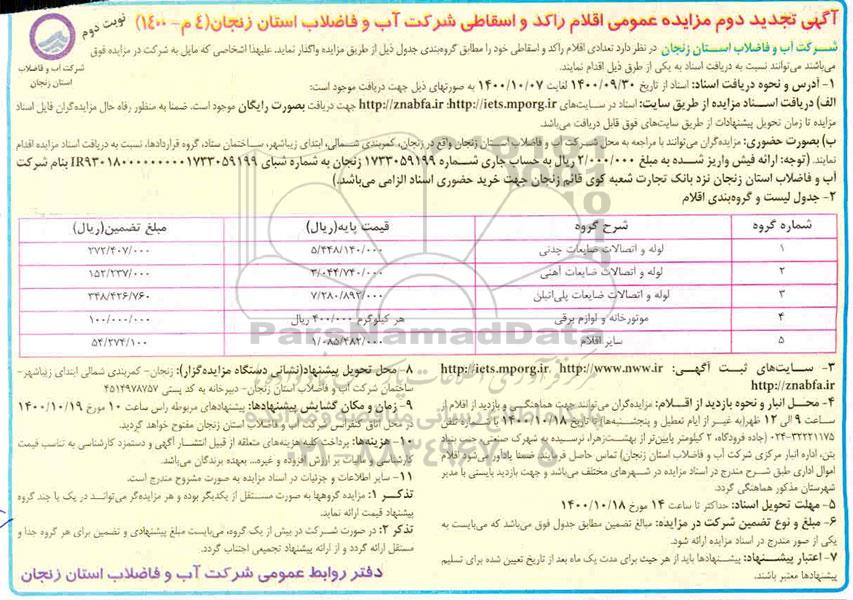 آگهی تجدید دوم مزایده عمومی اقلام راکد و اسقاطی شرکت آب و فاضلاب استان زنجان(٤ م-١٤٠٠)
نوبت دوم
شرکت آب و فاضلاب استان زنجان
شرکت آب و فاضلاب استان زنجان در نظر دارد تعدادی اقلام راکد و اسقاطی خود را مطابق گروه‌بندی جدول ذیل از طریق مزایده واگذار نماید. علیهذا اشخاصی که مایل به شرکت در مزایده فوق
می‌باشند می‌توانند نسبت به دریافت اسناد به یکی از طرق ذیل اقدام نمایند.
١- آدرس و نحوه دریافت اسناد: اسناد از تاریخ ١٤٠٠/٠٩/٣٠ لغایت ١٤٠٠/١٠/٠٧ به صورتهای ذیل جهت دریافت موجود است:
الف) دریافت اسناد مزایده از طریق سایت: اسناد در سایت‌های http://iets.mporg.ir؛ http://znabfa.ir جهت دریافت بصورت رایگان موجود است. ضمنا به منظور رفاه حال مزایده‌گران فایل اسناد
مزایده تا زمان تحویل پیشنهادات از طریق سایت‌های فوق قابل دریافت می‌باشد.
ب) بصورت حضوری: مزایده‌گران می‌توانند با مراجعه به محل شرکت آب و فاضلاب استان زنجان واقع در زنجان، کمربندی شمالی، ابتدای زیباشهر، ساختمان ستاد، گروه قراردادها، نسبت به دریافت اسناد مزایده اقدام
نمایند. (توجه: ارائه فیش واریز شده به مبلغ ٢/٠٠٠/٠٠٠ ریال به حساب جاری شماره ١٧٣٣٠٥٩١٩٩ زنجان به شماره شبای IR٩٣٠١٨٠٠٠٠٠٠٠٠٠٠١٧٣٣٠٥٩١٩٩ بنام شرکت
آب و فاضلاب استان زنجان نزد بانک تجارت شعبه کوی قائم زنجان جهت خرید حضوری اسناد الزامی می‌باشد.)
٢- جدول لیست و گروه‌بندی اقلام
شماره گروه شرح گروه قیمت پایه(ریال) مبلغ تضمین(ریال)
١ لوله و اتصالات ضایعات چدنی ٥/٤٤٨/١٤٠/٠٠٠ ٢٧٢/٤٠٧/٠٠٠
٢ لوله و اتصالات ضایعات آهنی ٣/٠٤٤/٧٤٠/٠٠٠ ١٥٢/٢٣٧/٠٠٠
٣ لوله و اتصالات ضایعات پلی‌اتیلن ٧/٢٨٠/٨٩٢/٠٠٠ ٣٤٨/٤٢٦/٧٦٠
٤ موتورخانه و لوازم برقی هر کیلوگرم ٤٠٠/٠٠٠ ریال ١٠٠/٠٠٠/٠٠٠
٥ سایر اقلام ١/٠٨٥/٤٨٢/٠٠٠ ٥٤/٢٧٤/١٠٠
٣- سایت‌های ثبت آگهی: http://iets.mporg.ir، http://www.nww.ir
http://znabfa.ir
٤- محل انبار و نحوه بازدید از اقلام: مزایده‌گران می‌توانند جهت هماهنگی و بازدید از اقلام از
ساعت ٩ الی ١٢ ظهر(به غیر از ایام تعطیل و پنجشنبه‌ها) تا تاریخ ١٤٠٠/١٠/١٨ با شماره تلفن
٣٢٢٢١١٧٥-٠٢٤ (جاده فرودگاه، ٢ کیلومتر پایین‌تر از بهشت‌زهرا، نرسیده به شهرک صنعتی نوآوران، بنیاد
بتن، اداره انبار مرکزی شرکت آب و فاضلاب استان زنجان) تماس حاصل فرمایند. ضمنا یادآور می‌شود اقلام
اموال اداری طبق شرح مندرج در اسناد مزایده در شهرهای مختلف می‌باشد و جهت بازدید بایستی با مدیر
شهرستان مذکور هماهنگی گردد.
٥- مهلت تحویل اسناد: حداکثر تا ساعت ١٤ مورخ ١٤٠٠/١٠/١٨
٦- مبلغ و نوع تضمین شرکت در مزایده: مبالغ تضمین مطابق جدول فوق می‌باشد که می‌بایست به
یکی از صور مندرج در اسناد مزایده ارائه شود.
٧- اعتبار پیشنهاد: پیشنهادها باید از هر حیث برای مدت یک ماه بعد از تاریخ تعیین شده برای تسلیم
پیشنهادها معتبر باشند.
٨- محل تحویل پیشنهاد(نشانی دستگاه مزایده‌گزار): زنجان- کمربندی شمالی ابتدای زیباشهر-
ساختمان شرکت آب و فاضلاب استان زنجان- دبیرخانه به کد پستی ٤٥١٤٩٧٨٧٥٧
٩- زمان و مکان گشایش پیشنهادها: پیشنهادهای مربوطه راس ساعت ١٠ مورخ ١٤٠٠/١٠/١٩
در محل اتاق کنفرانس شرکت آب و فاضلاب استان زنجان مفتوح خواهد گردید.
١٠- هزینه‌ها: پرداخت کلیه هزینه‌های متعلقه از قبیل انتشار آگهی و دستمزد کارشناسی به تناسب قیمت
کارشناسی و مالیات بر ارزش افزوده و غیره... بعهده برندگان می‌باشد.
١١- سایر اطلاعات و جزئیات در اسناد مزایده به صورت مشروح مندرج است.
تذکر ١: مزایده گروهها به صورت مستقل از یکدیگر بوده و هر مزایده‌گر می‌تواند در یک یا چند گروه
پیشنهاد قیمت ارائه نماید.
تذکر ٢: در صورت شرکت در بیش از یک گروه، می‌بایست مبلغ پیشنهادی و تضمین برای هر گروه جدا و
مستقل ارائه گردد و از ارائه پیشنهاد تجمیعی اجتناب گردد.
دفتر روابط عمومی شرکت آب و فاضلاب استان زنجان
ParsNamadData